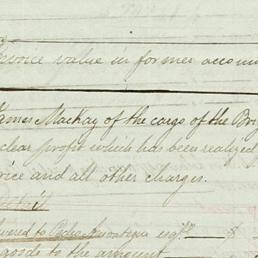 Invoice value in former accoun
James MacKay of the cargo of the Brig
clear profit which has been realized
oice and all other charges.
livered to Pedro
goods to the amount